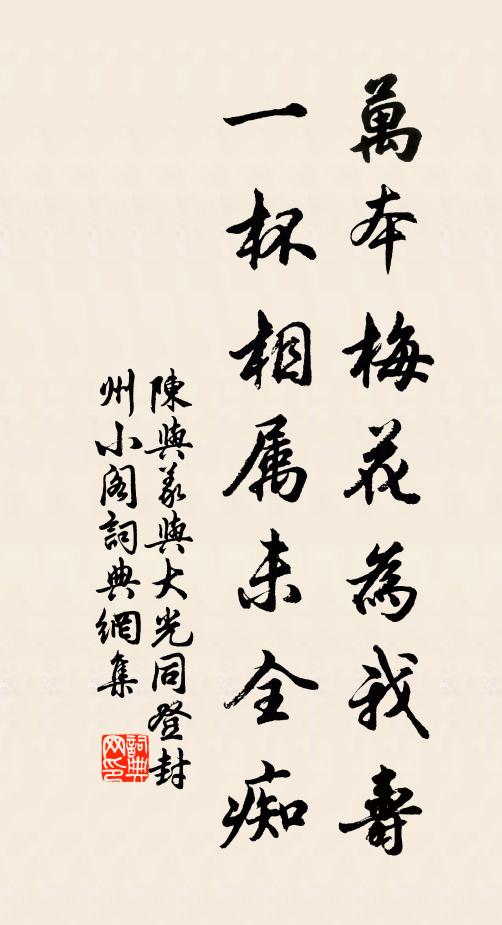 萬本梅花為我壽
一杯相属未全痴
陳與義與大光同登封
州小閣詞典網集
詞典网印